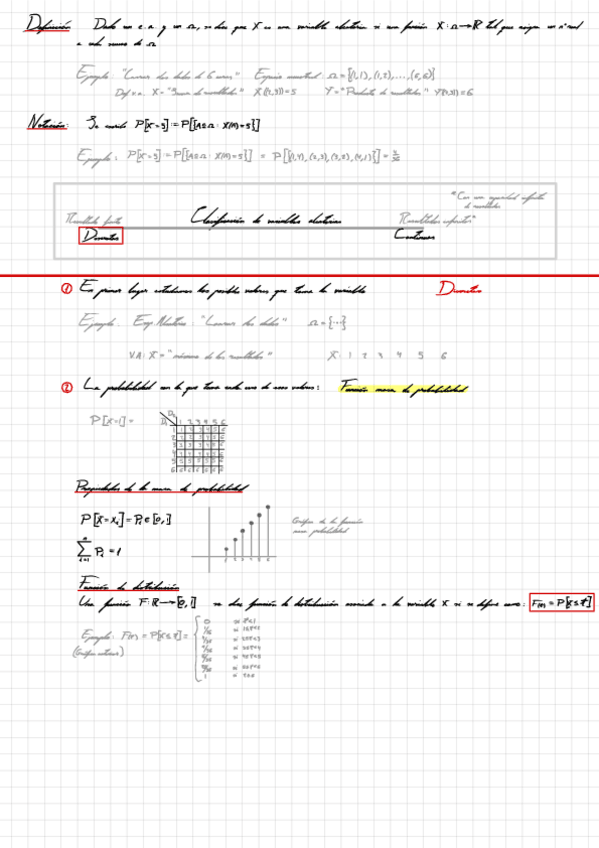 Definición Dado un e.a. y un Ω, se dice que X es una variable aleatoria si una función X: Ω→R tal que asigna un nº real
a cada suceso de Ω
Ejemplo: "Lanzar dos dados de 6 caras" Espacio muestral: Ω={(1,1),(1,2),...,(6,6)}
Def v.a. X="Suma de resultados" X((2,3))=5 Y="Producto de resultados" Y((2,3))=6
Notación: Se escribe P[X=5]:=P[{A∈Ω: X(A)=5}]
Ejemplo: P[X=5]:=P[{A∈Ω: X(A)=5}] = P[{(1,4),(2,3),(3,2),(4,1)}]=4/36
"Con una cantidad infinita
de resultados
Resultado finito Clasificación de variables aleatorias Resultados infinitos"
Discretas Continuas
① En primer lugar estudiamos los posibles valores que toma la variable Discretas
Ejemplo: "Lanzar dos dados" Ω={...}
V.A: X="máximo de los resultados" X: 1 2 3 4 5 6
② La probabilidad con la que toma cada uno de esos valores: Función masa de probabilidad
P[X=i]=
Propiedades de la masa de probabilidad
P[X=xᵢ]=Pᵢ∈[0,1]
Gráfica de la función
masa probabilidad
∑ Pᵢ=1
Función de distribución
Una función F:R→[0,1] se dice función de distribución asociada a la variable X si se define como: F(x)=P[X≤x]
Ejemplo: F(x)=P[X≤x]=
(Gráfica anterior)